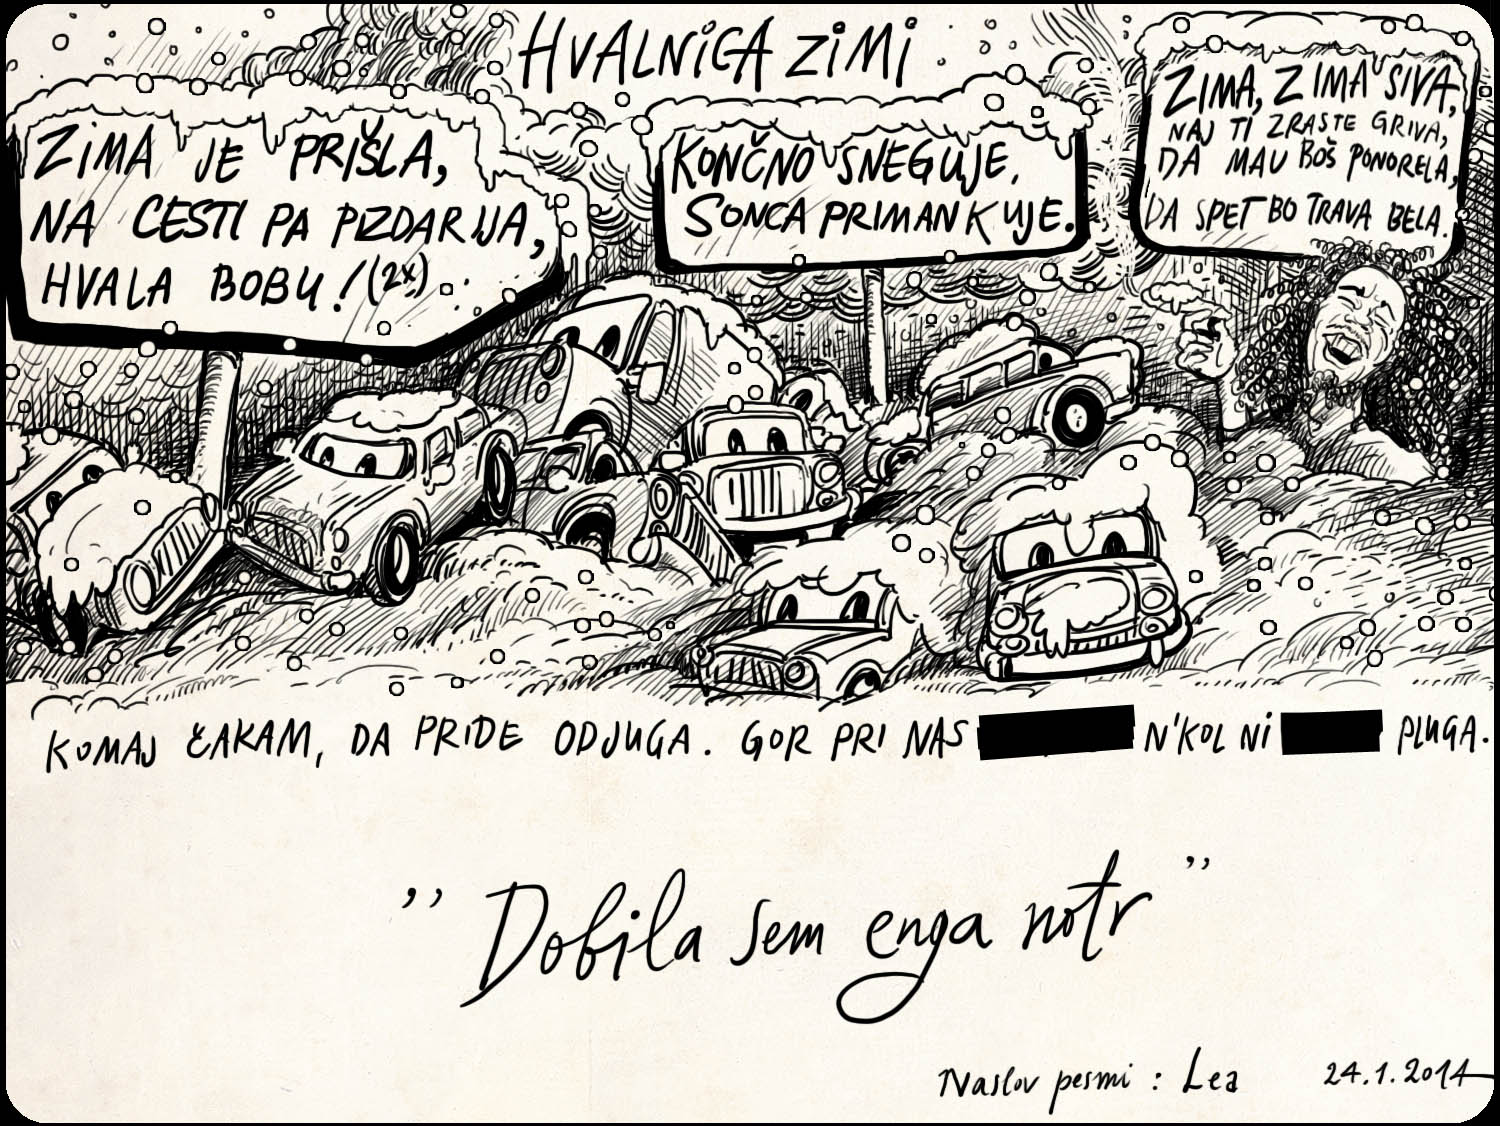 HVALNICA ZIMI
ZIMA JE PRIŠLA,
NA CESTI PA PIZDARIJA,
HVALA BOBU! (2x)
KONČNO SNEGUJE,
SONCA PRIMANKUJE.
ZIMA, ZIMA SIVA,
NAJ TI ZRASTE GRIVA,
DA MAU BOŠ PONORELA,
DA SPET BO TRAVA BELA.
KOMAJ ČAKAM, DA PRIDE ODJUGA. GOR PRI NAS N'KOL NI PLUGA.
" Dobila sem enga notr "
Naslov pesmi : Lea 24.1.2014